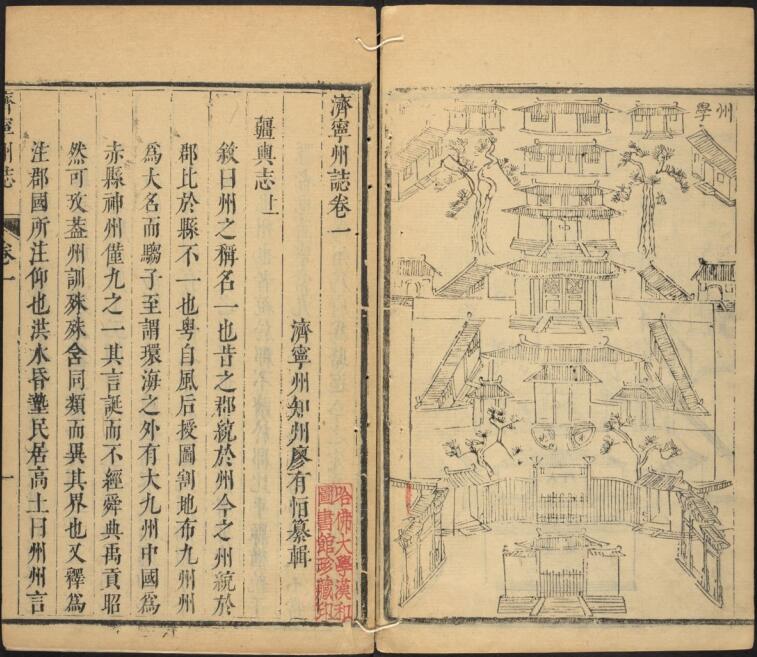 州學
濟寧州誌卷一
濟寧州知州廖有恒纂輯
疆輿志上
敘曰州之稱名一也昔之郡統於州今之州統於
郡比於縣不一也粤自風后授圖割地布九州州
爲大名而騶子至謂環海之外有大九州中國爲
赤縣神州僅九之一其言誕而不經舜典禹貢昭
然可攷葢州訓殊殊含同類而異其界也又釋爲
注郡國所注仰也洪水昏墊民居高土曰州州言
濟寧州志
卷一
一
哈佛大學漢和
圖書館珍藏印